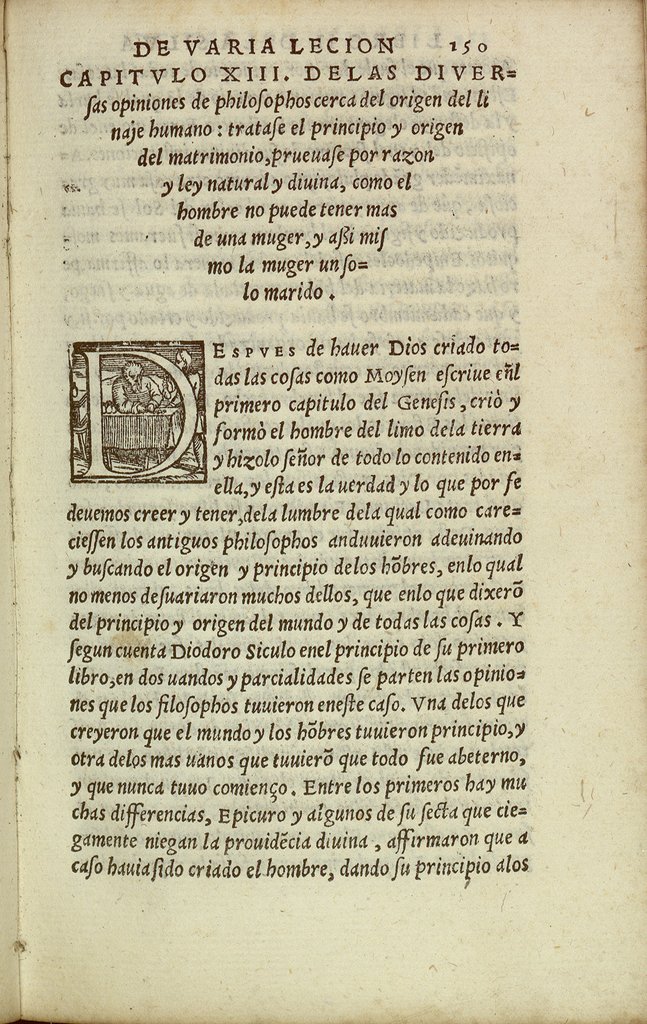 DE VARIA LECION 150
CAPITVLO XIII. DELAS DIVER=
ſas opiniones de philoſophos cerca del origen del li
naje humano : trataſe el principio y origen
del matrimonio, prueuaſe por razon
y ley natural y diuina, como el
hombre no puede tener mas
de una muger, y aßi miſ
mo la muger un ſo=
lo marido .
DESPVES de hauer Dios criado to=
das las coſas como Moyſen eſcriue eñl
primero capitulo del Geneſis , criò y
formò el hombre del limo dela tierra
y hizolo ſeñor de todo lo contenido en=
ella, y eſta es la uerdad y lo que por fe
deuemos creer y tener, dela lumbre dela qual como care=
cieſſen los antiguos philoſophos anduuieron adeuinando
y buſcando el origen y principio delos hõbres, enlo qual
no menos deſuariaron muchos dellos, que enlo que dixerõ
del principio y origen del mundo y de todas las coſas . Y
ſegun cuenta Diodoro Siculo enel principio de ſu primero
libro, en dos uandos y parcialidades ſe parten las opinio=
nes que los filoſophos tuuieron eneſte caſo. Vna delos que
creyeron que el mundo y los hõbres tuuieron principio, y
otra delos mas uanos que tuuierõ que todo fue abeterno,
y que nunca tuuo comienço . Entre los primeros hay mu
chas differencias, Epicuro y algunos de ſu ſecta que cie=
gamente niegan la prouidẽcia diuina , affirmaron que a
caſo hauia ſido criado el hombre, dando ſu principio alos